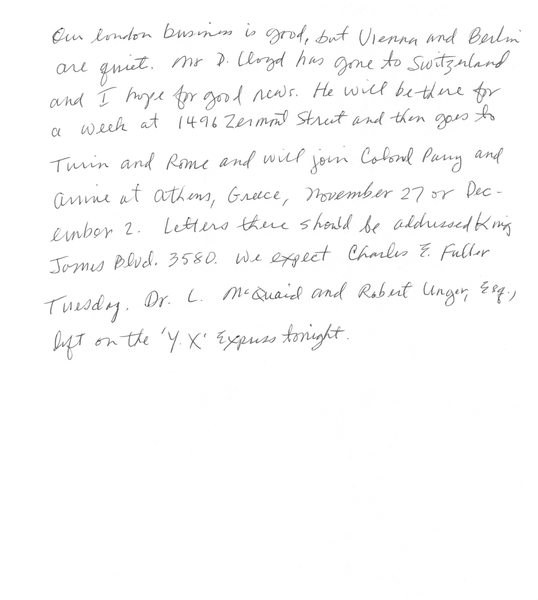 Our london business is good, but Vienna and Berlin
are quiet. Mr D. Lloyd has gone to Switzerland
and I hope for good news. He will be there for
a week at 1496 Zermont Street and then goes to
Turin and Rome and will join Colonel Parry and
arrive at athens, Greece, November 27 or Dec-
ember 2. Letters there should be addressed King
James Blvd. 3580. We expect Charles E. Fuller
Tuesday. Dr. L. McQuaid and Robert Unger, Esq.,
left on the 'Y.X' Express tonight.